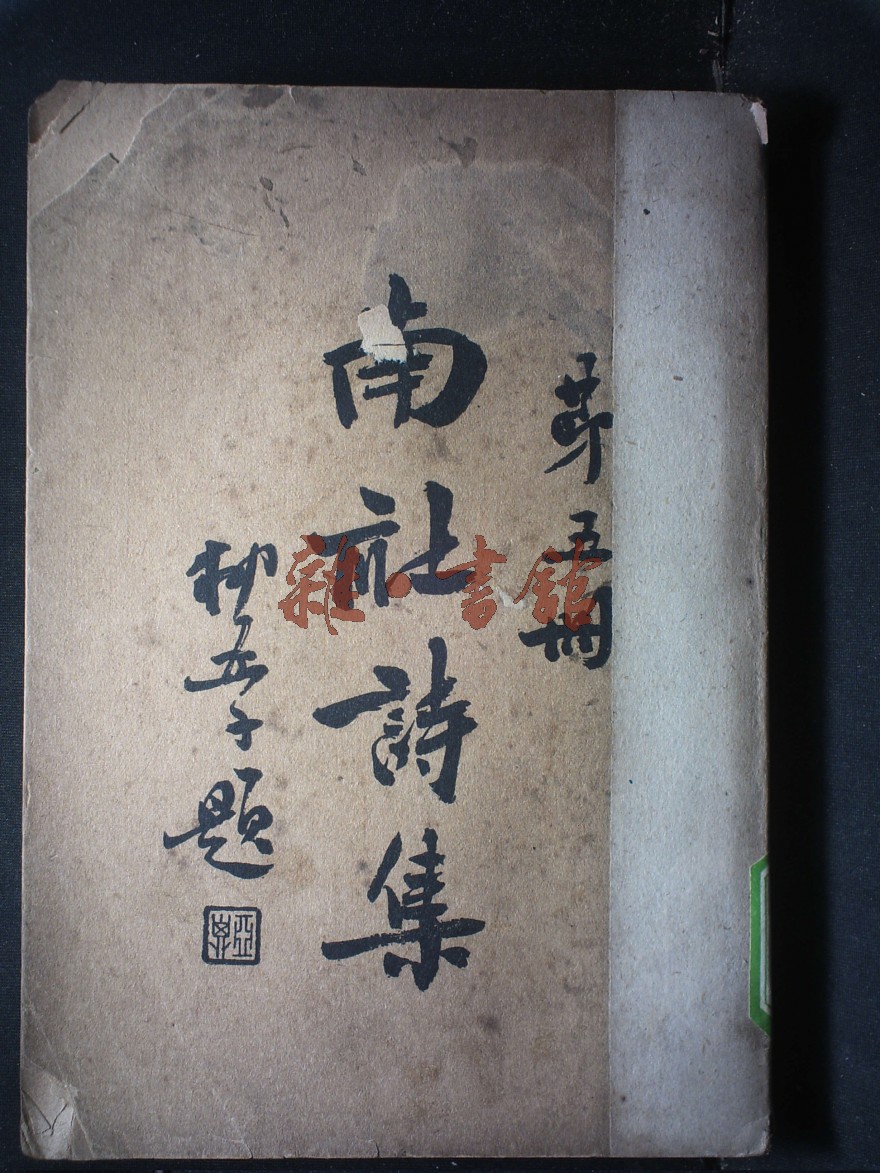 第五冊
南社詩集
柳亞子題
雜·書館